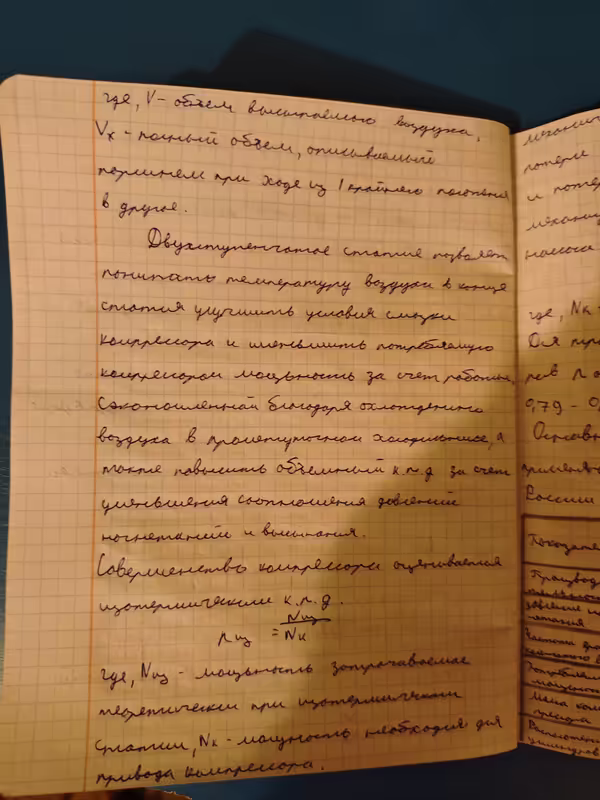 где, V - объем всасываемого воздуха,
Vx - полный объем, описываемый
поршнем при ходе из 1 крайнего положения
в другое.
Двухступенчатое сжатие позволяет
понижать температуру воздуха в конце
сжатия улучшить условия смазки
компрессора и уменьшить потребляемую
компрессором мощьность за счет работы,
сэкономленной благодаря охлаждению
воздуха в промежуточном холодильнике, а
также повысить объемный к.п.д за счет
уменьшения соотношения давлений
нагнетаний и всасывания.
Совершенство компрессора оценивается
изотермическим к.п.д.
ηиз = Nиз / Nк
где, Nиз - мощьность затрачиваемая
теоретически при изотермическом
сжатии, Nк - мощность необходимая для
привода компрессора.
механич
потери
и потер
механи
насоса
где, Nк -
Для
0,79 - 0,
Основн
применя
России
Показате
Производ
давление
Частота
Потребляем
мощность